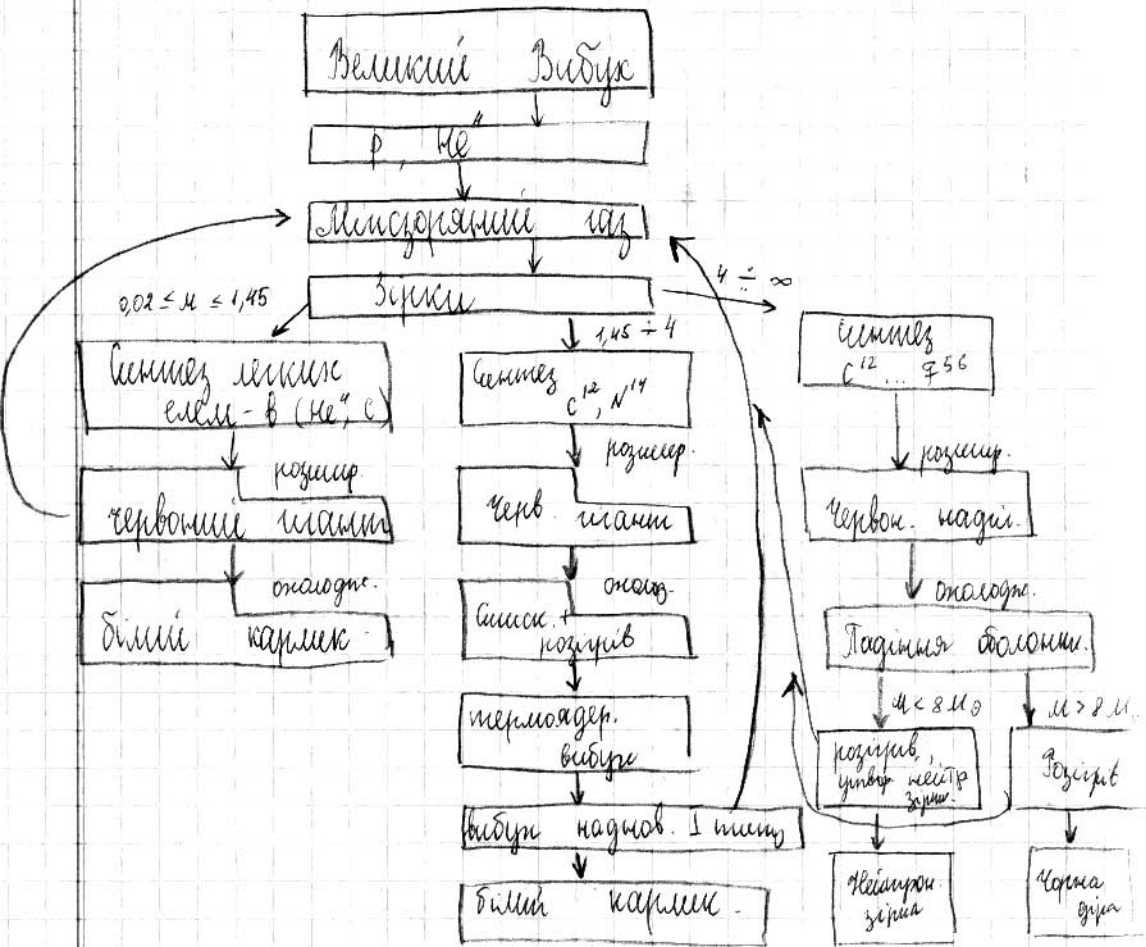 Великий Вибух
p, He⁴
Міжзоряний газ
Зірки
0,02 ≤ M ≤ 1,45
1,45 ÷ 4
4 ÷ ∞
Синтез легких
елем-в (He⁴, C)
розшир.
червоний гігант
охолодж.
білий карлик
Синтез
C¹², N¹⁴
розшир.
Черв. гігант
охолод.
Стиск. +
розігрів
термоядер.
вибух
вибух наднов. I типу
білий карлик.
Синтез
C¹² ... F⁵⁶
розшир.
Червон. надгіг.
охолодж.
Падіння оболонки.
M < 8M☉
M > 8M
розігрів,
утвор нейтр
зірки.
Розігрів
Нейтрон.
зірка
Чорна
діра